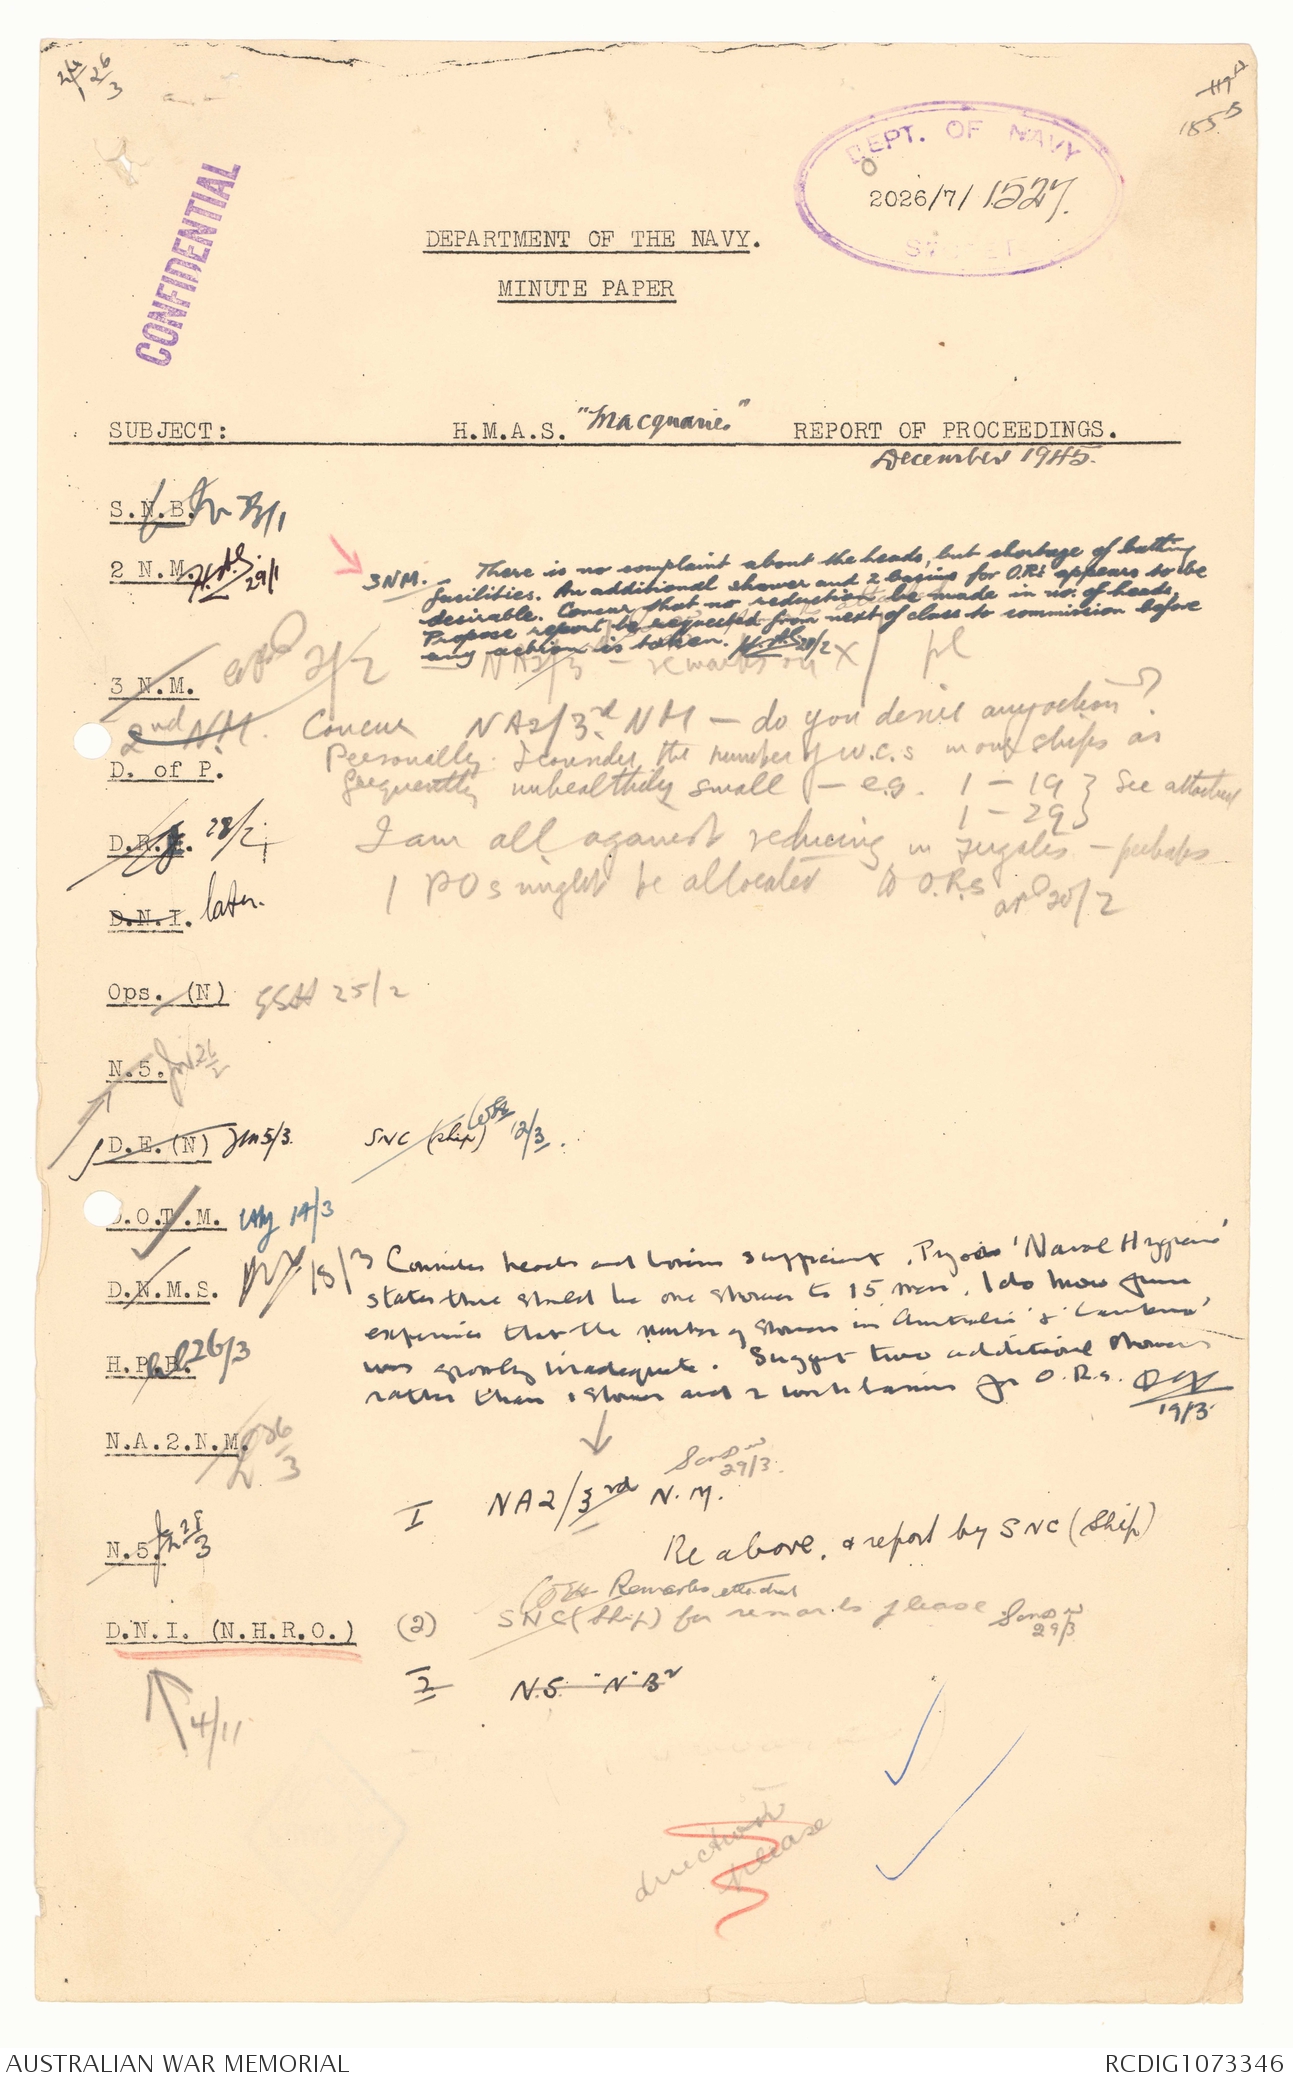 24/26/3
185B
CONFIDENTIAL
DEPT. OF NAVY
2026/7/1527.
DEPARTMENT OF THE NAVY.
MINUTE PAPER
SUBJECT: H.M.A.S. "Macquarie" REPORT OF PROCEEDINGS.
December 1945.
S.N.B.
2 N.M. 29/1
3NM. There is no complaint about the heads, but shortage of bathing
facilities. An additional shower and 2 basins for O.R's appears to be
desirable. Concur that no reduction be made in no. of heads.
Propose report be requested from next of class to commission before
any action is taken. 20/2
NA2/3 - remarks on X pl
3 N.M. 2/2
2nd NM. Concur NA2/3rd NM - do you desire any action?
D. of P.
Personally I consider the number of w.c.s in our ships as
frequently unhealthily small - e.g. 1 - 19 } See attached
1 - 29 }
D.R. 28/2
I am all against reducing in Frigates - perhaps
1 POs might be allocated to O.R.S 20/2
D.N.I. later.
Ops. (N) 25/2
N.5. 26/2
D.E.(N) 5/3. SNC (ship) 12/3.
D.O.T.M. 14/3
D.N.M.S. 18/3
Consider heads and basins sufficient. 'Naval Hygiene'
states there should be one shower to 15 men. I do know from
experience that the number of showers in 'Australia' & 'Canberra'
was grossly inadequate. Suggest two additional showers
rather than 1 shower and 2 wash basins for O.R.s.
19/3
H.P.B. 26/3
N.A.2.N.M. 26/3
I NA2/3rd N.M. 29/3.
Re above, & report by SNC (Ship)
N.5. 28/3
Remarks attached
D.N.I. (N.H.R.O.) (2) SNC (Ship) for remarks please 29/3
I N.5. "N"
4/11
direction
please
AUSTRALIAN WAR MEMORIAL
RCDIG1073346